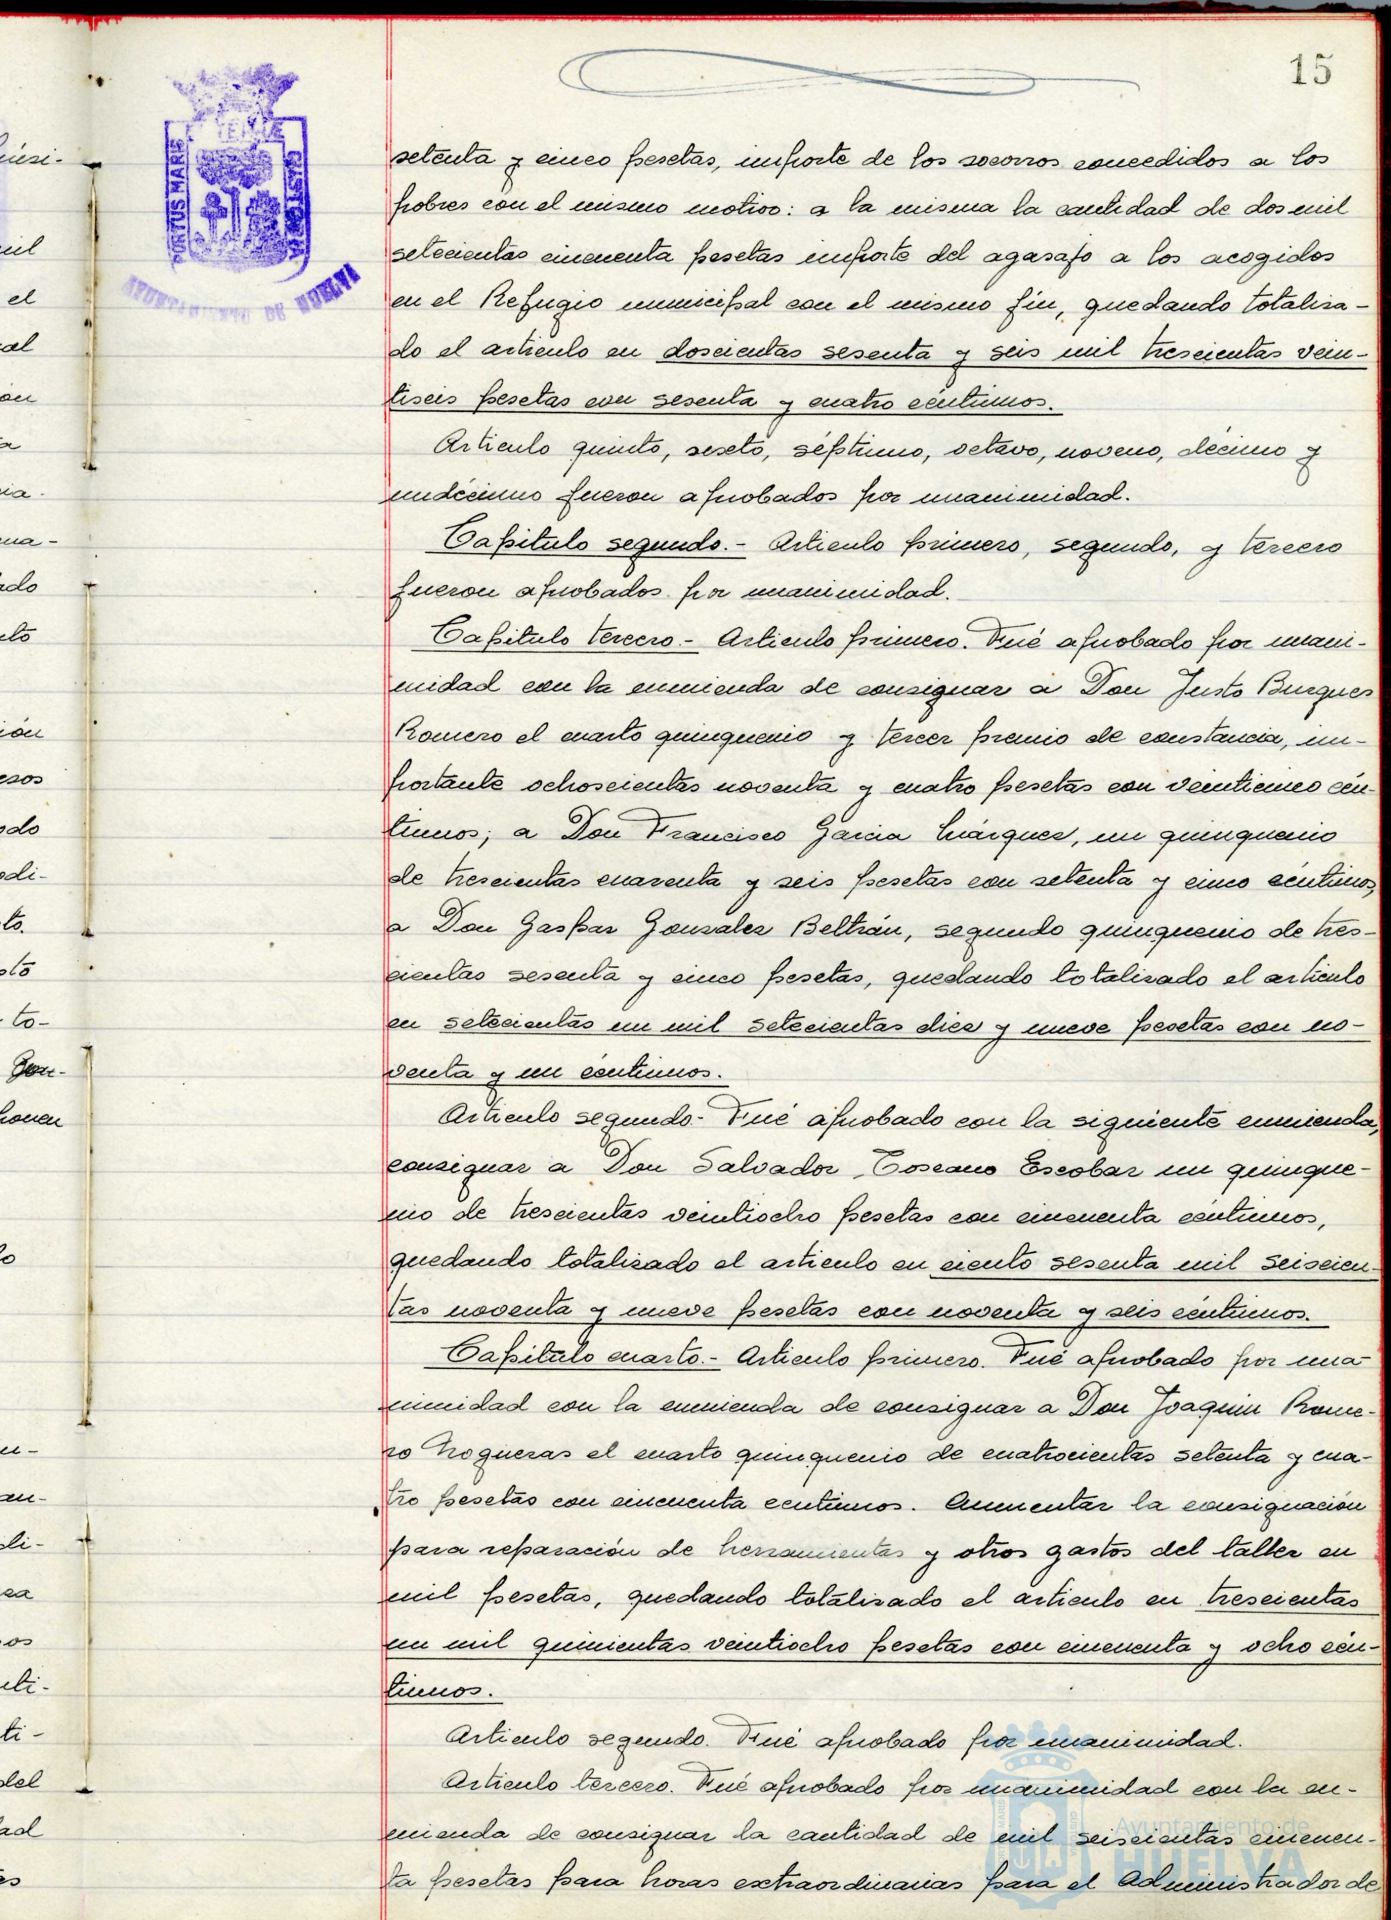 15
PORTUS MARIS
AYUNTAMIENTO DE HUELVA
setenta y cinco pesetas, importe de los socorros concedidos a los
pobres con el mismo motivo: a la misma la cantidad de dos mil
setecientas cincuenta pesetas importe del agasajo a los acogidos
en el Refugio municipal con el mismo fín, quedando totaliza-
do el articulo en doscientas sesenta y seis mil trescientas vein-
tiseis pesetas con sesenta y cuatro céntimos.
Articulo quinto, sexto, séptimo, octavo, noveno, décimo y
undécimo fueron aprobados por unanimidad.
Capitulo segundo.- Articulo primero, segundo, y tercero
fueron aprobados por unanimidad.
Capitulo tercero.- Articulo primero. Fué aprobado por unani-
midad con la enmienda de consignar a Don Justo Burgues
Romero el cuarto quinquenio y tercer premio de constancia, im-
portante ochoscientas noventa y cuatro pesetas con veinticinco cén-
timos; a Don Francisco Garcia Márquez, un quinquenio
de trescientas cuarenta y seis pesetas con setenta y cinco céntimos,
a Don Gaspar Gonzalez Beltrán, segundo quinquenio de tres-
cientas sesenta y cinco pesetas, quedando totalizado el articulo
en setecientas un mil setecientas diez y nueve pesetas con no-
venta y un céntimos.
Articulo segundo.- Fué aprobado con la siguiente enmienda,
consignar a Don Salvador Toscano Escobar un quinque-
nio de trescientas veintiocho pesetas con cincuenta céntimos,
quedando totalizado el articulo en ciento sesenta mil seiscien-
tas noventa y nueve pesetas con noventa y seis céntimos.
Capitulo cuarto.- Articulo primero. Fué aprobado por una-
nimidad con la enmienda de consignar a Don Joaquin Rome-
ro Nogueras el cuarto quinquenio de cuatrocientas setenta y cua-
tro pesetas con cincuenta centimos. Aumentar la consignación
para reparación de herramientas y otros gastos del taller en
mil pesetas, quedando totalizado el articulo en trescientas
un mil quinientas veintiocho pesetas con cincuenta y ocho cén-
timos.
Articulo segundo. Fué aprobado por unanimidad.
Articulo tercero. Fué aprobado por unanimidad con la en-
mienda de consignar la cantidad de mil seiscientas cincuen-
ta pesetas para horas extraordinarias para el Administrador de
Ayuntamiento de
HUELVA